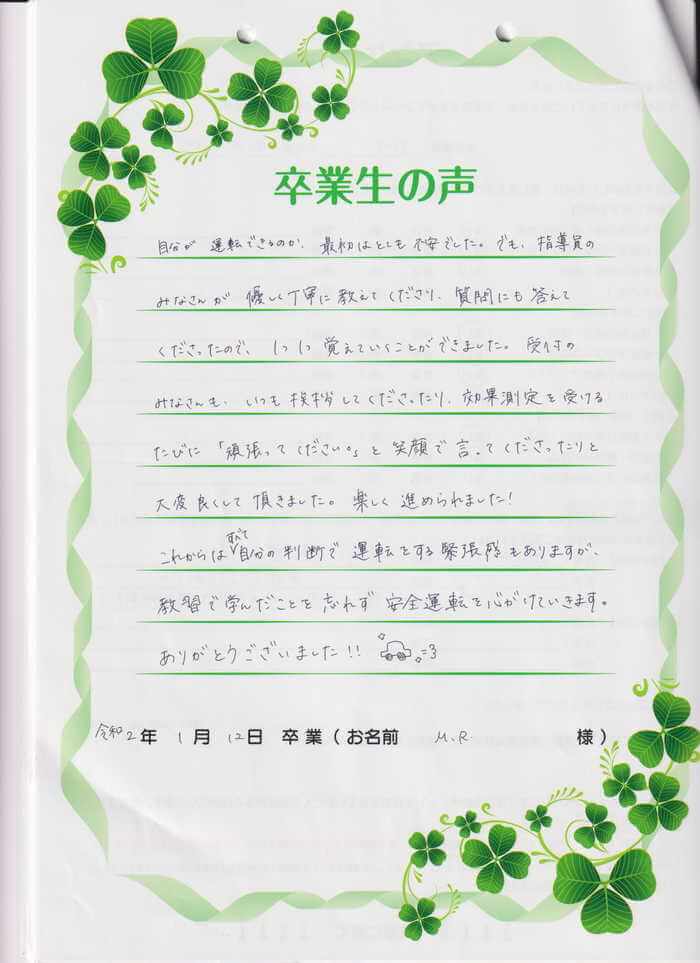 卒業生の声
自分が運転できるのか、最初はとても不安でした。でも、指導員の
みなさんが優しく丁寧に教えてくださり、質問にも答えて
くださったので、1つ1つ覚えていくことができました。受付の
みなさんも、いつも挨拶してくださったり、効果測定を受ける
たびに「頑張ってください。」と笑顔で言ってくださったりと
大変良くして頂きました。楽しく進められました!
これからはすべて自分の判断で運転をする緊張感もありますが、
教習で学んだことを忘れず安全運転を心がけていきます。
ありがとうございました!!
令和2年 1月 12日 卒業(お名前 M.R 様)